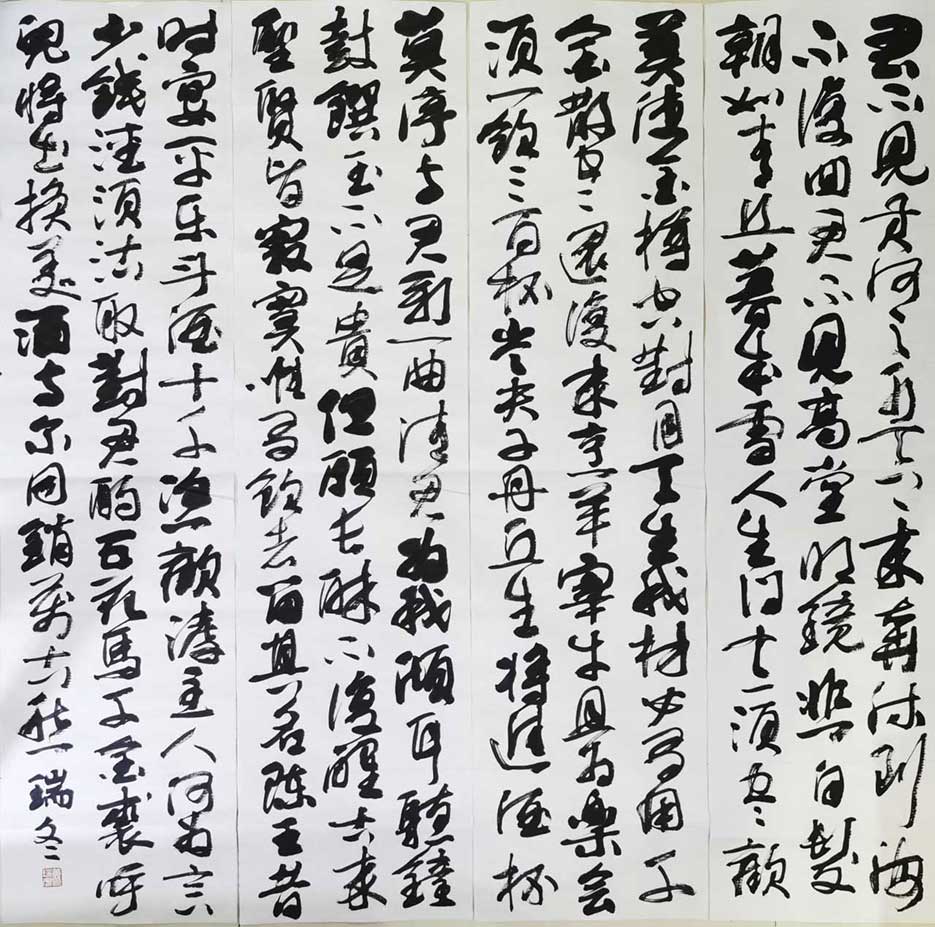 君不見黄河之水天上来奔流到海
不復回君不見高堂明鏡悲白髮
朝如青丝暮成雪人生得意須尽歡
莫使金樽空對月天生我材必有用千
金散盡還復来烹羊宰牛且为樂会
須一飲三百杯岑夫子丹丘生將進酒杯
莫停与君歌一曲請君为我傾耳聽鐘
鼓饌玉不足貴但願长醉不復醒古来
聖賢皆寂寞惟有飲者留其名陈王昔
时宴平乐斗酒十千恣歡謔主人何为言
少錢徑須沽取對君酌五花馬千金裘呼
兒將出换美酒与尔同銷萬古愁 瑞冬